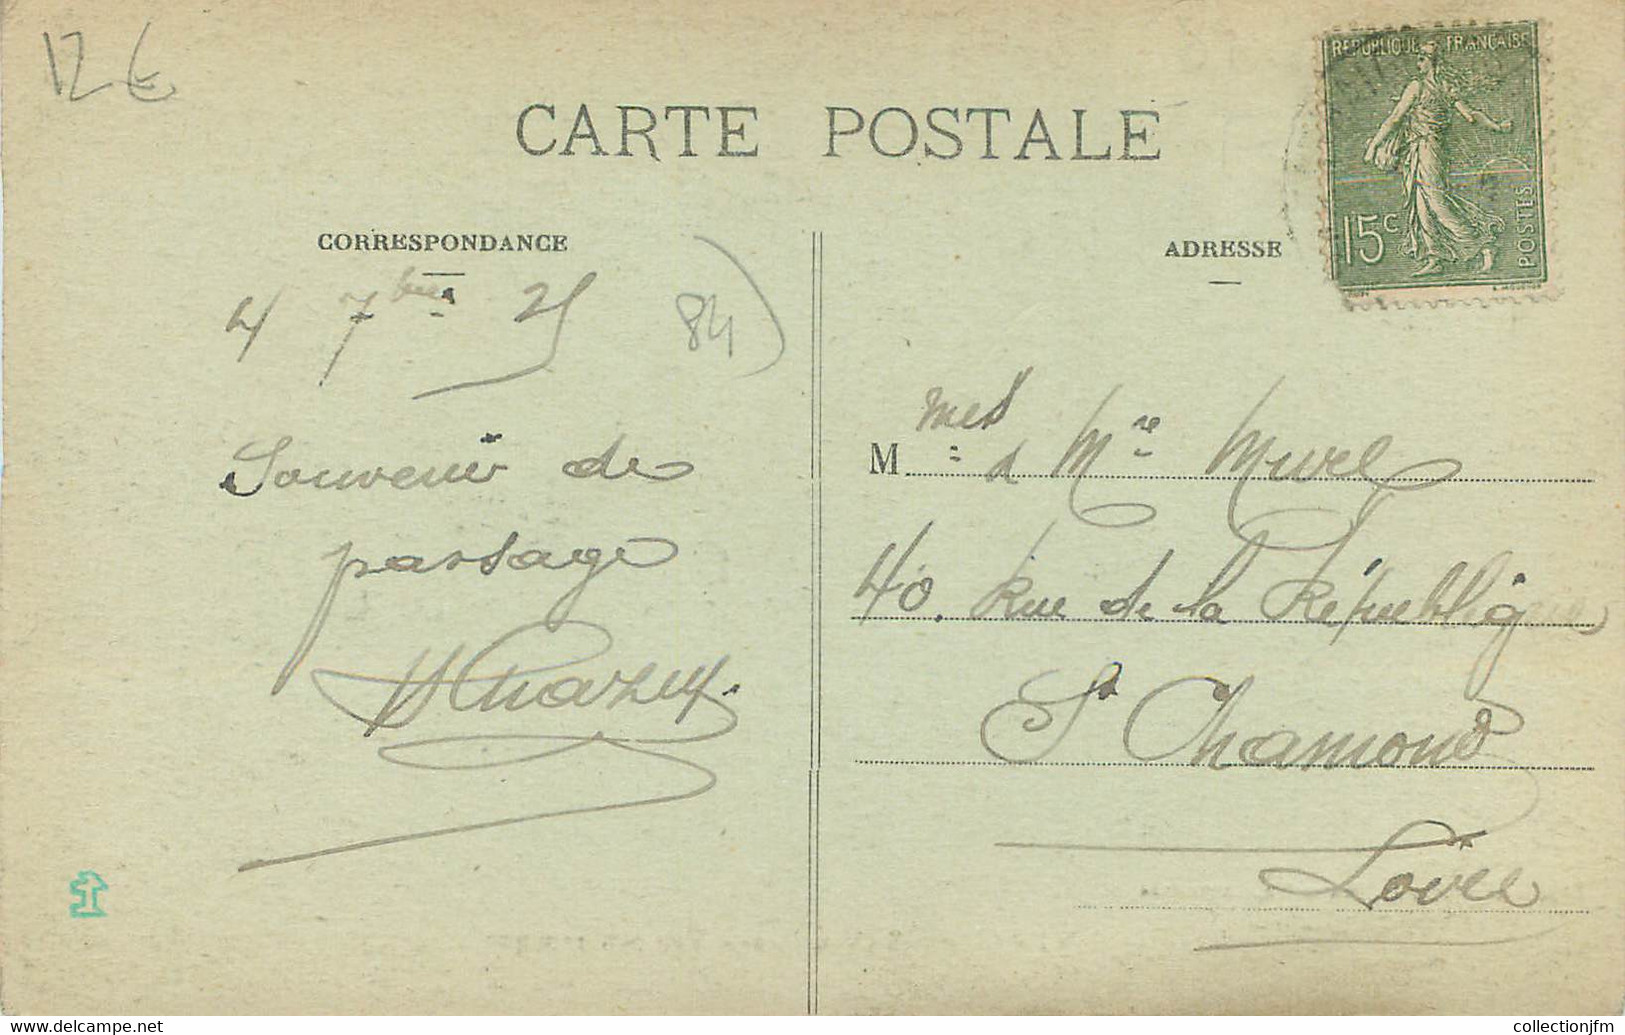 12€
CARTE POSTALE
REPUBLIQUE FRANCAISE
15c
POSTES
CORRESPONDANCE
ADRESSE
4 7bre 25
84
Souvenir de
passage
M
40. Rue de la République
St Chamond
Loire
www.delcampe.net
collectionjfm